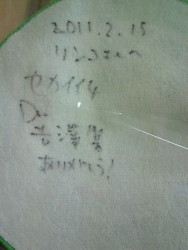 2011.2.15
リンゴさんへ
セカイイチ
Dr
吉澤
ありがとう!